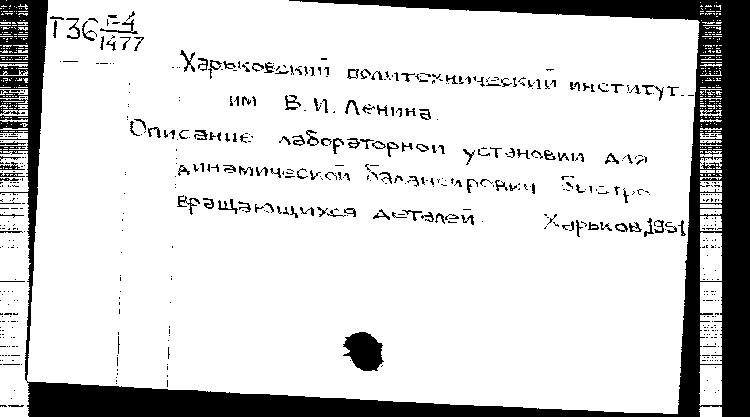 Т36 Г-4
1477
Харьковский политехнический институт
им В.И. Ленина.
Описание лабораторной установки для
динамической балансировки быстро
вращающихся деталей. Харьков, 1951